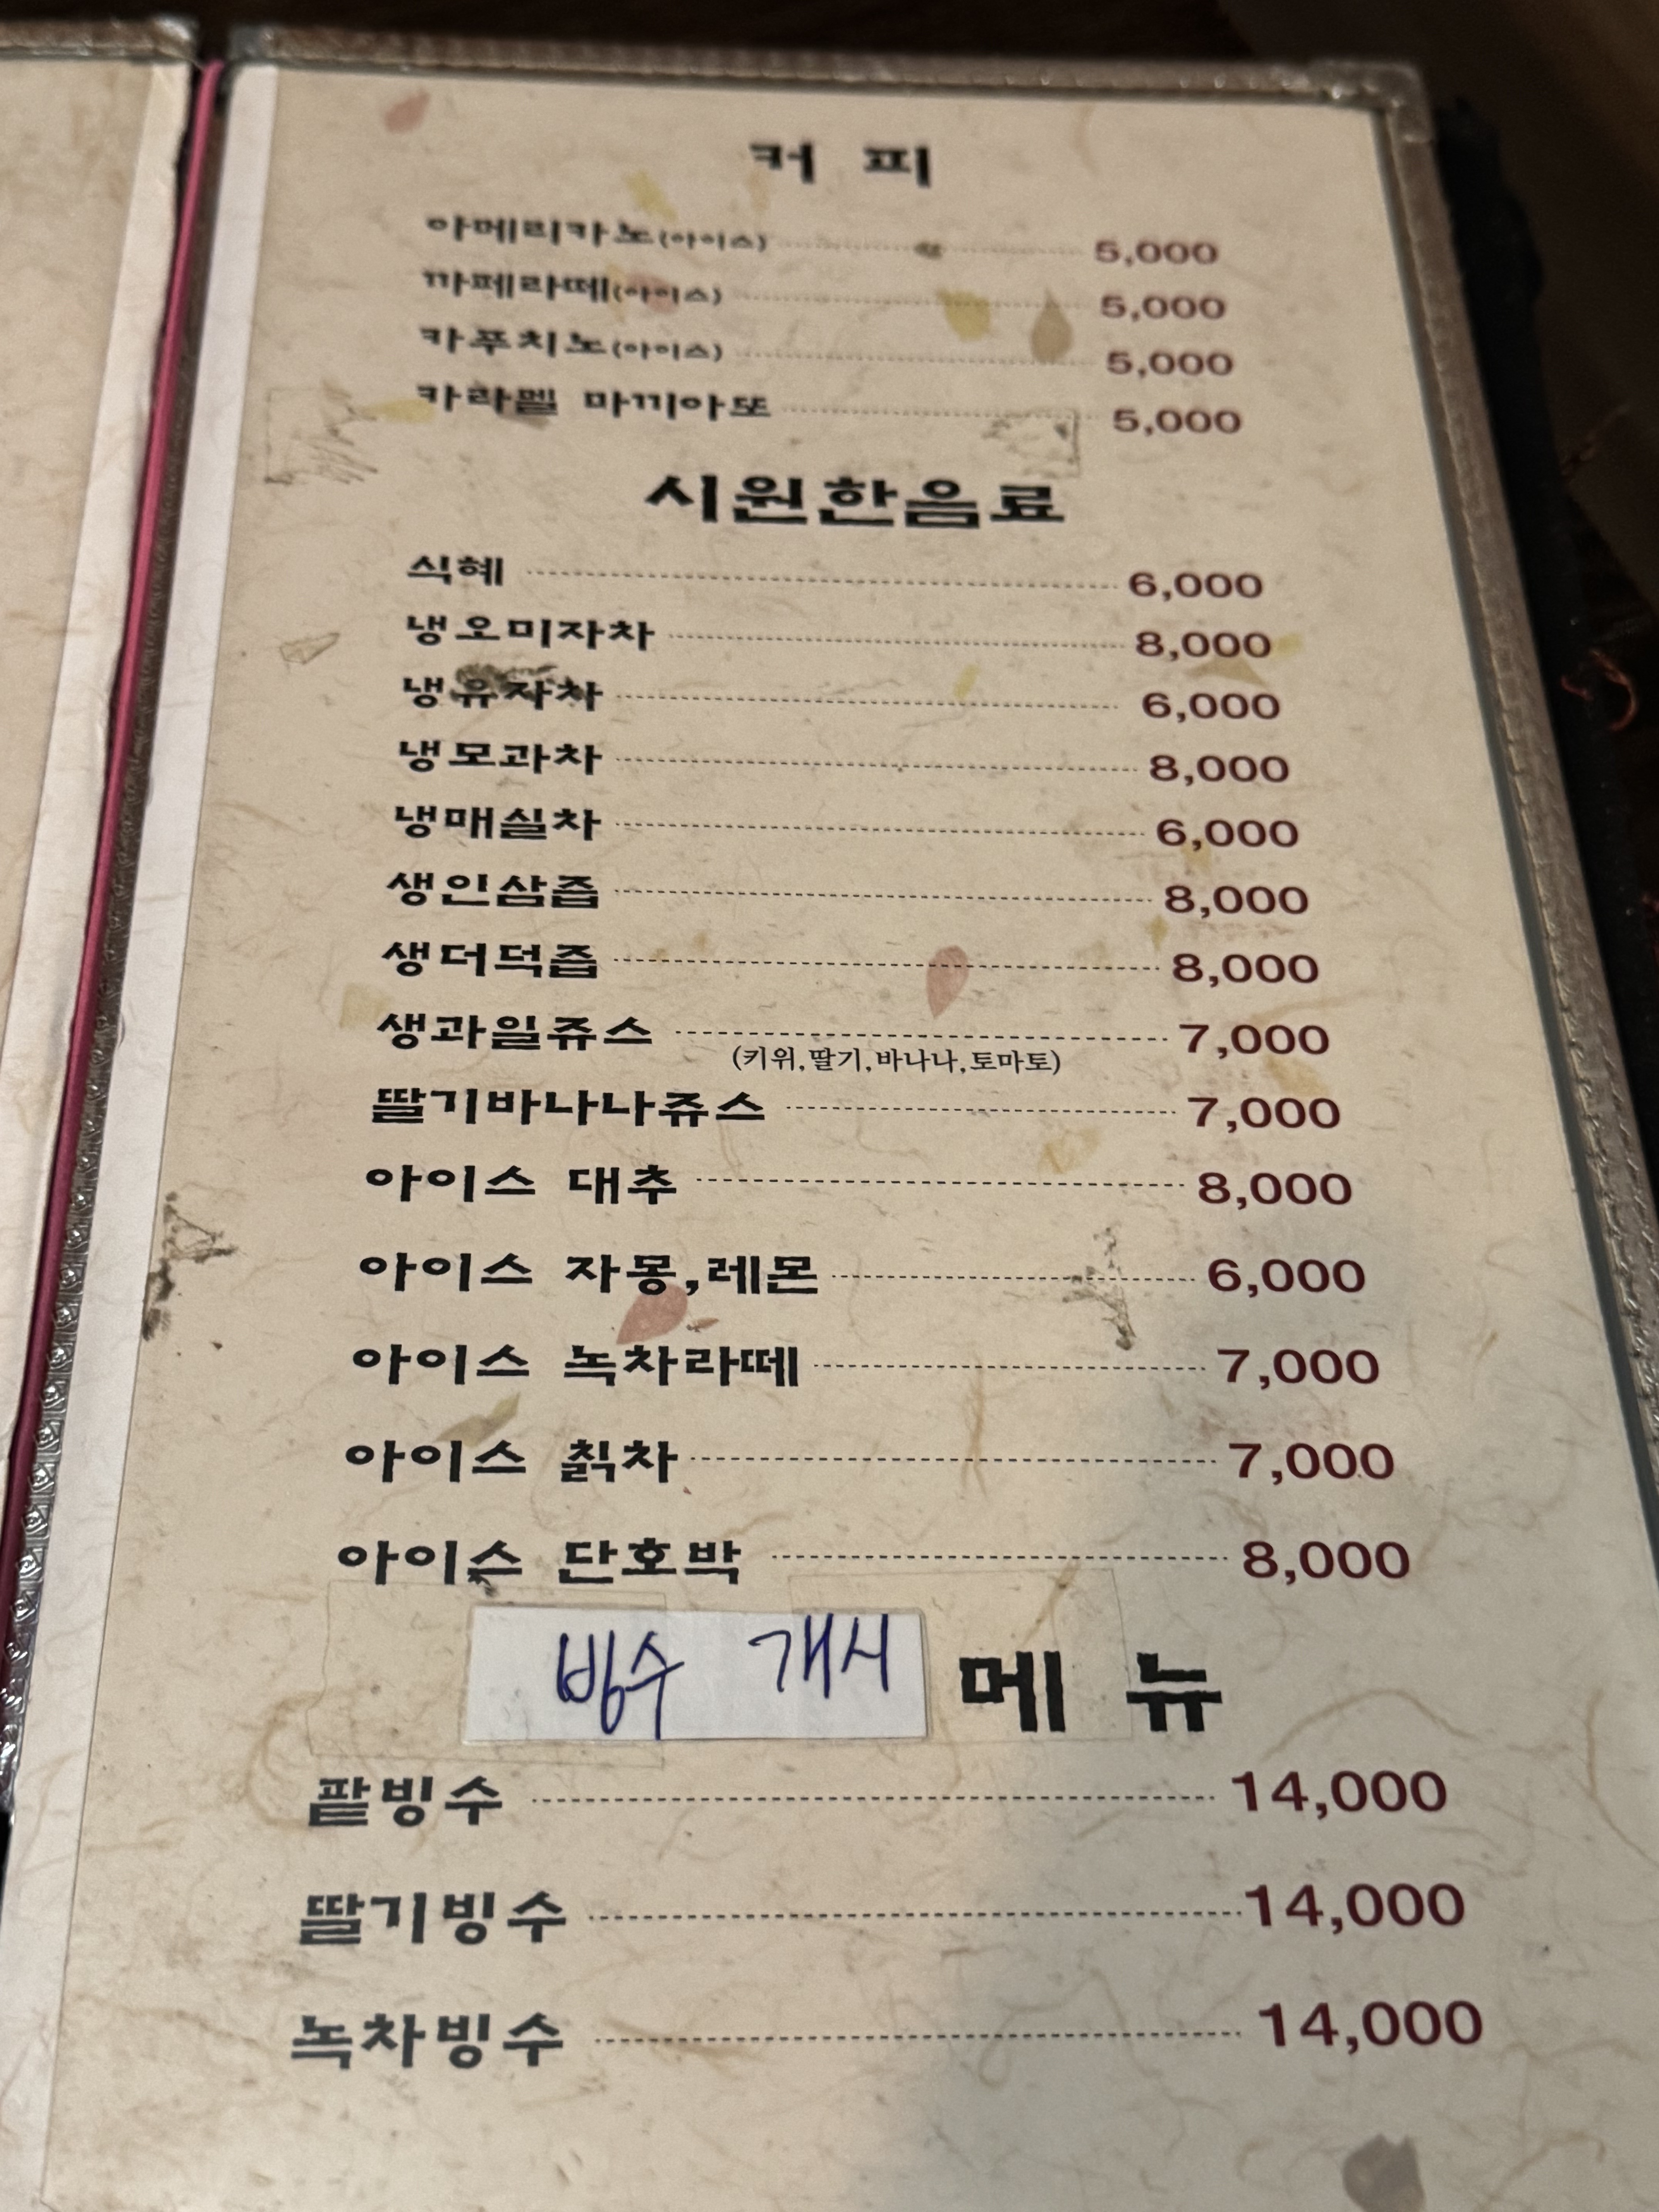 커 피
아메리카노(아이스) 5,000
까페라떼(아이스) 5,000
카푸치노(아이스) 5,000
카라멜 마끼아또 5,000
시원한음료
식혜 6,000
냉오미자차 8,000
냉유자차 6,000
냉모과차 8,000
냉매실차 6,000
생인삼즙 8,000
생더덕즙 8,000
생과일쥬스 7,000
(키위,딸기,바나나,토마토)
딸기바나나쥬스 7,000
아이스 대추 8,000
아이스 자몽,레몬 6,000
아이스 녹차라떼 7,000
아이스 칡차 7,000
아이스 단호박 8,000
빙수 개시 메 뉴
팥빙수 14,000
딸기빙수 14,000
녹차빙수 14,000